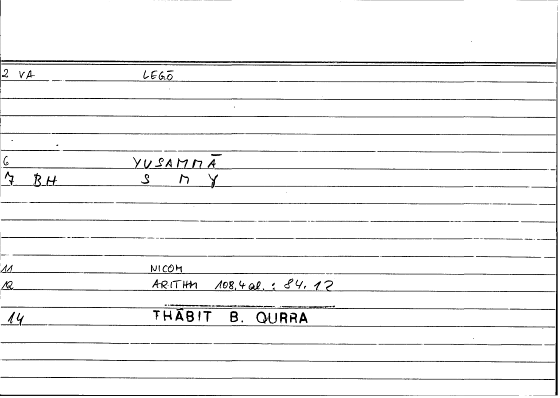 2 VA LEGŌ
6 YUSAMMĀ
7 BH S M Y
11 NICOM
12 ARITHM 108,4 al. : 84.12
14 THĀBIT B. QURRA